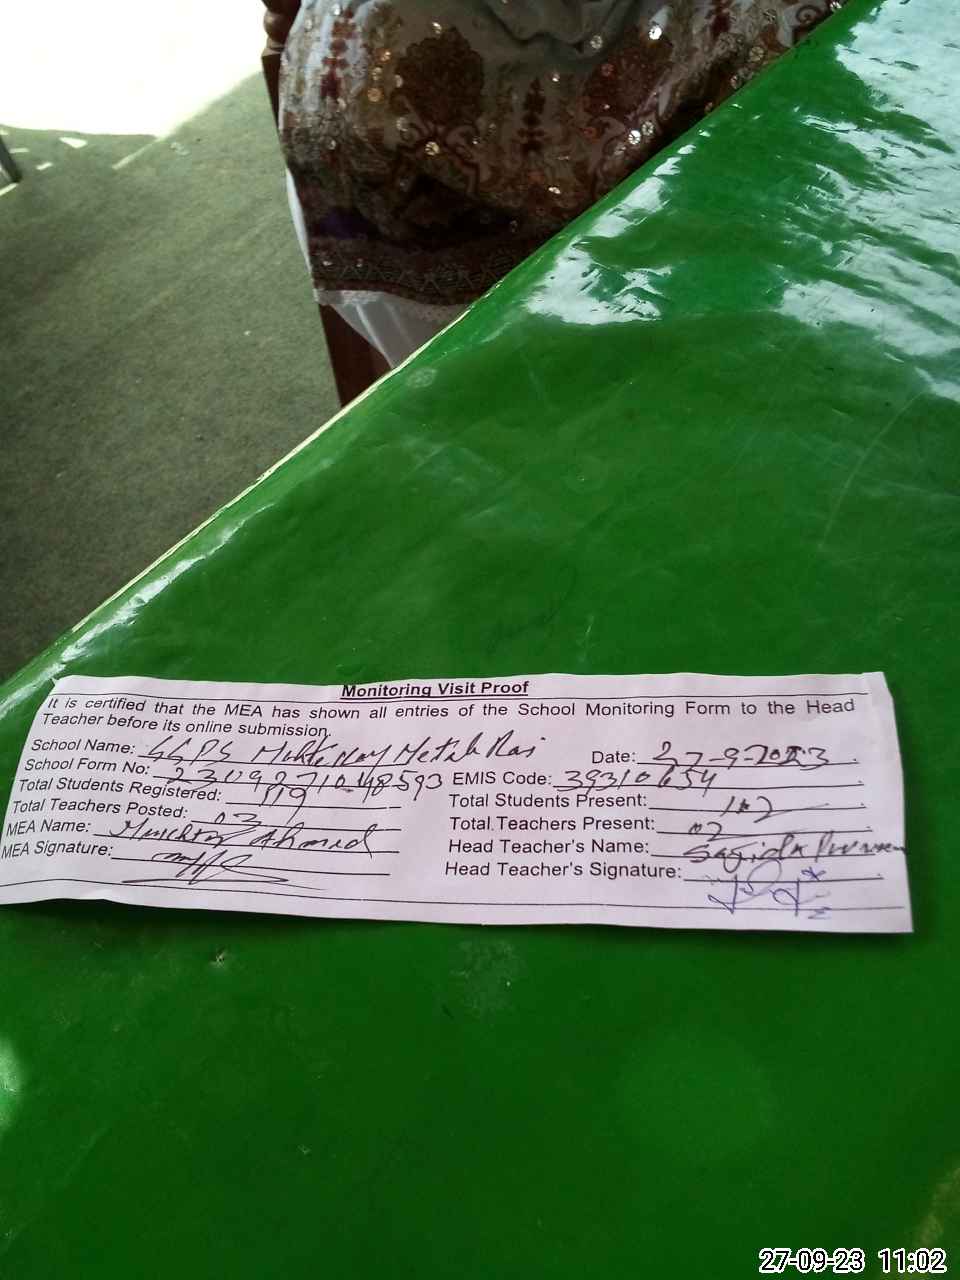 Monitoring Visit Proof
It is certified that the MEA has shown all entries of the School Monitoring Form to the Head
Teacher before its online submission.
School Name: GGPS Date: 27-9-2023
School Form No: EMIS Code: 39310654
Total Students Registered: 119 Total Students Present: 102
Total Teachers Posted: 02 Total Teachers Present: 02
MEA Name: Ahmed Head Teacher's Name: Sajida
MEA Signature: Head Teacher's Signature:
27-09-23 11:02